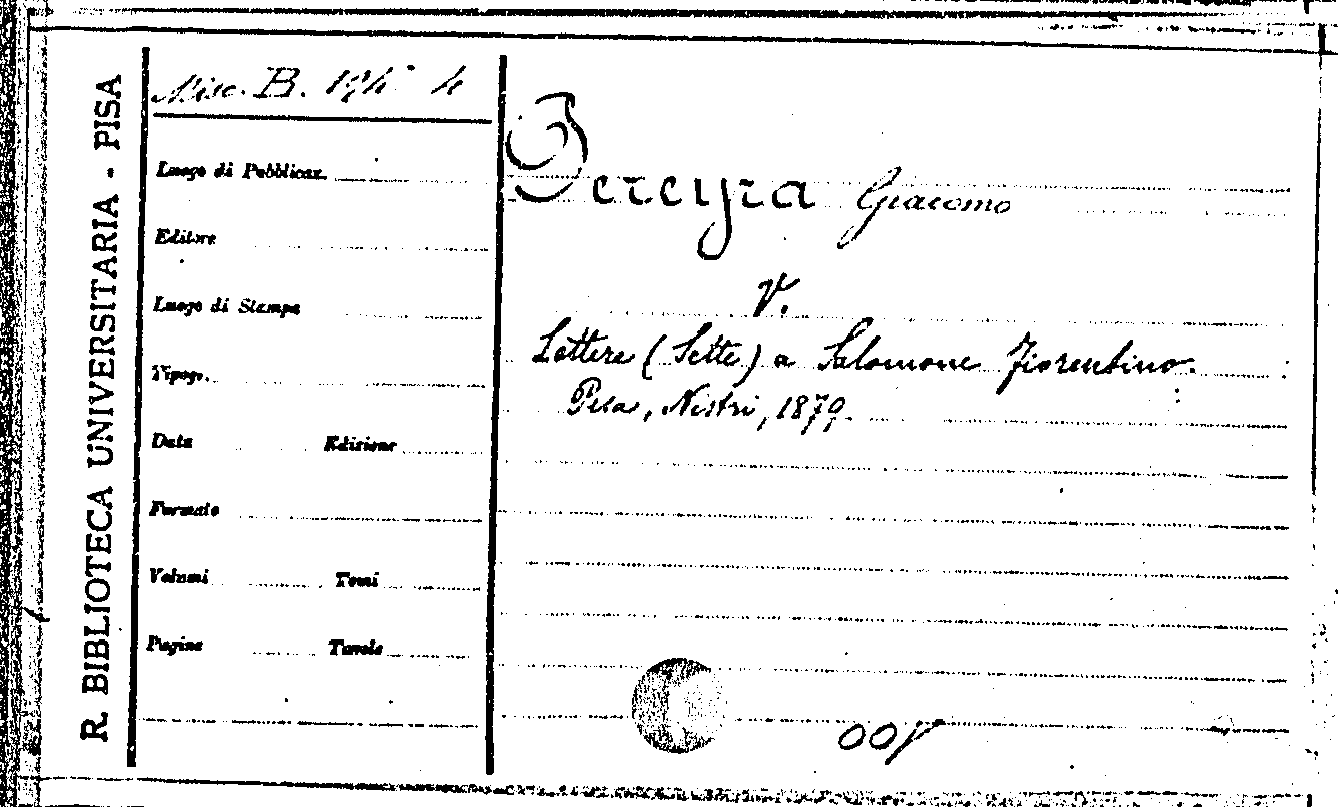 R. BIBLIOTECA UNIVERSITARIA - PISA
Misc. B. 4
Luogo di Pubblicaz.
Editore
Luogo di Stampa
Tipogr.
Data Edizione
Formato
Volumi Tomi
Pagine Tavole
Pereyra Giacomo
V.
Lettere (Sette) a Salomone Fiorentino.
Pisa, Nistri, 1879.